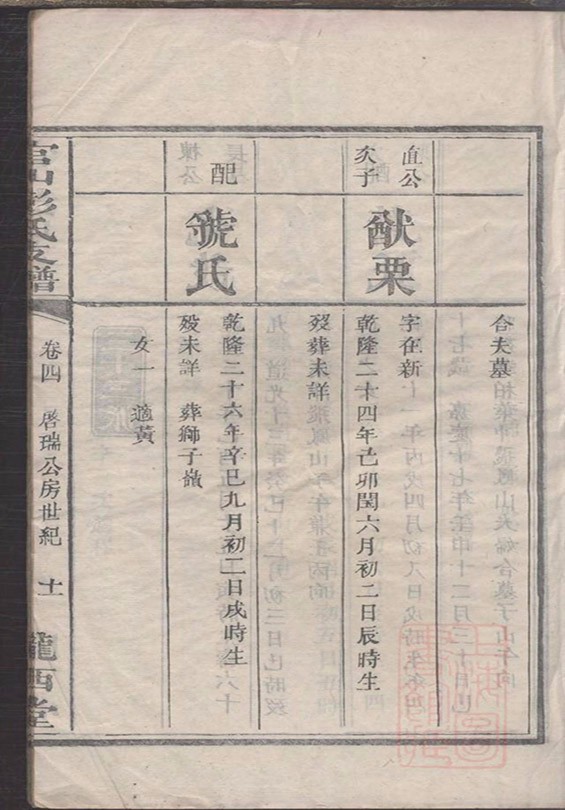 合夫墓
直公
次子
猷栗
字在新
乾隆二十四年己卯閏六月初二日辰時生
歿葬未詳
配
虢氏
乾隆二十六年辛巳九月初二日戌時生
歿未詳 葬獅子嶺
女一 適黃
官山彭氏支譜
卷四 啓瑞公房世紀 十一
隴西堂